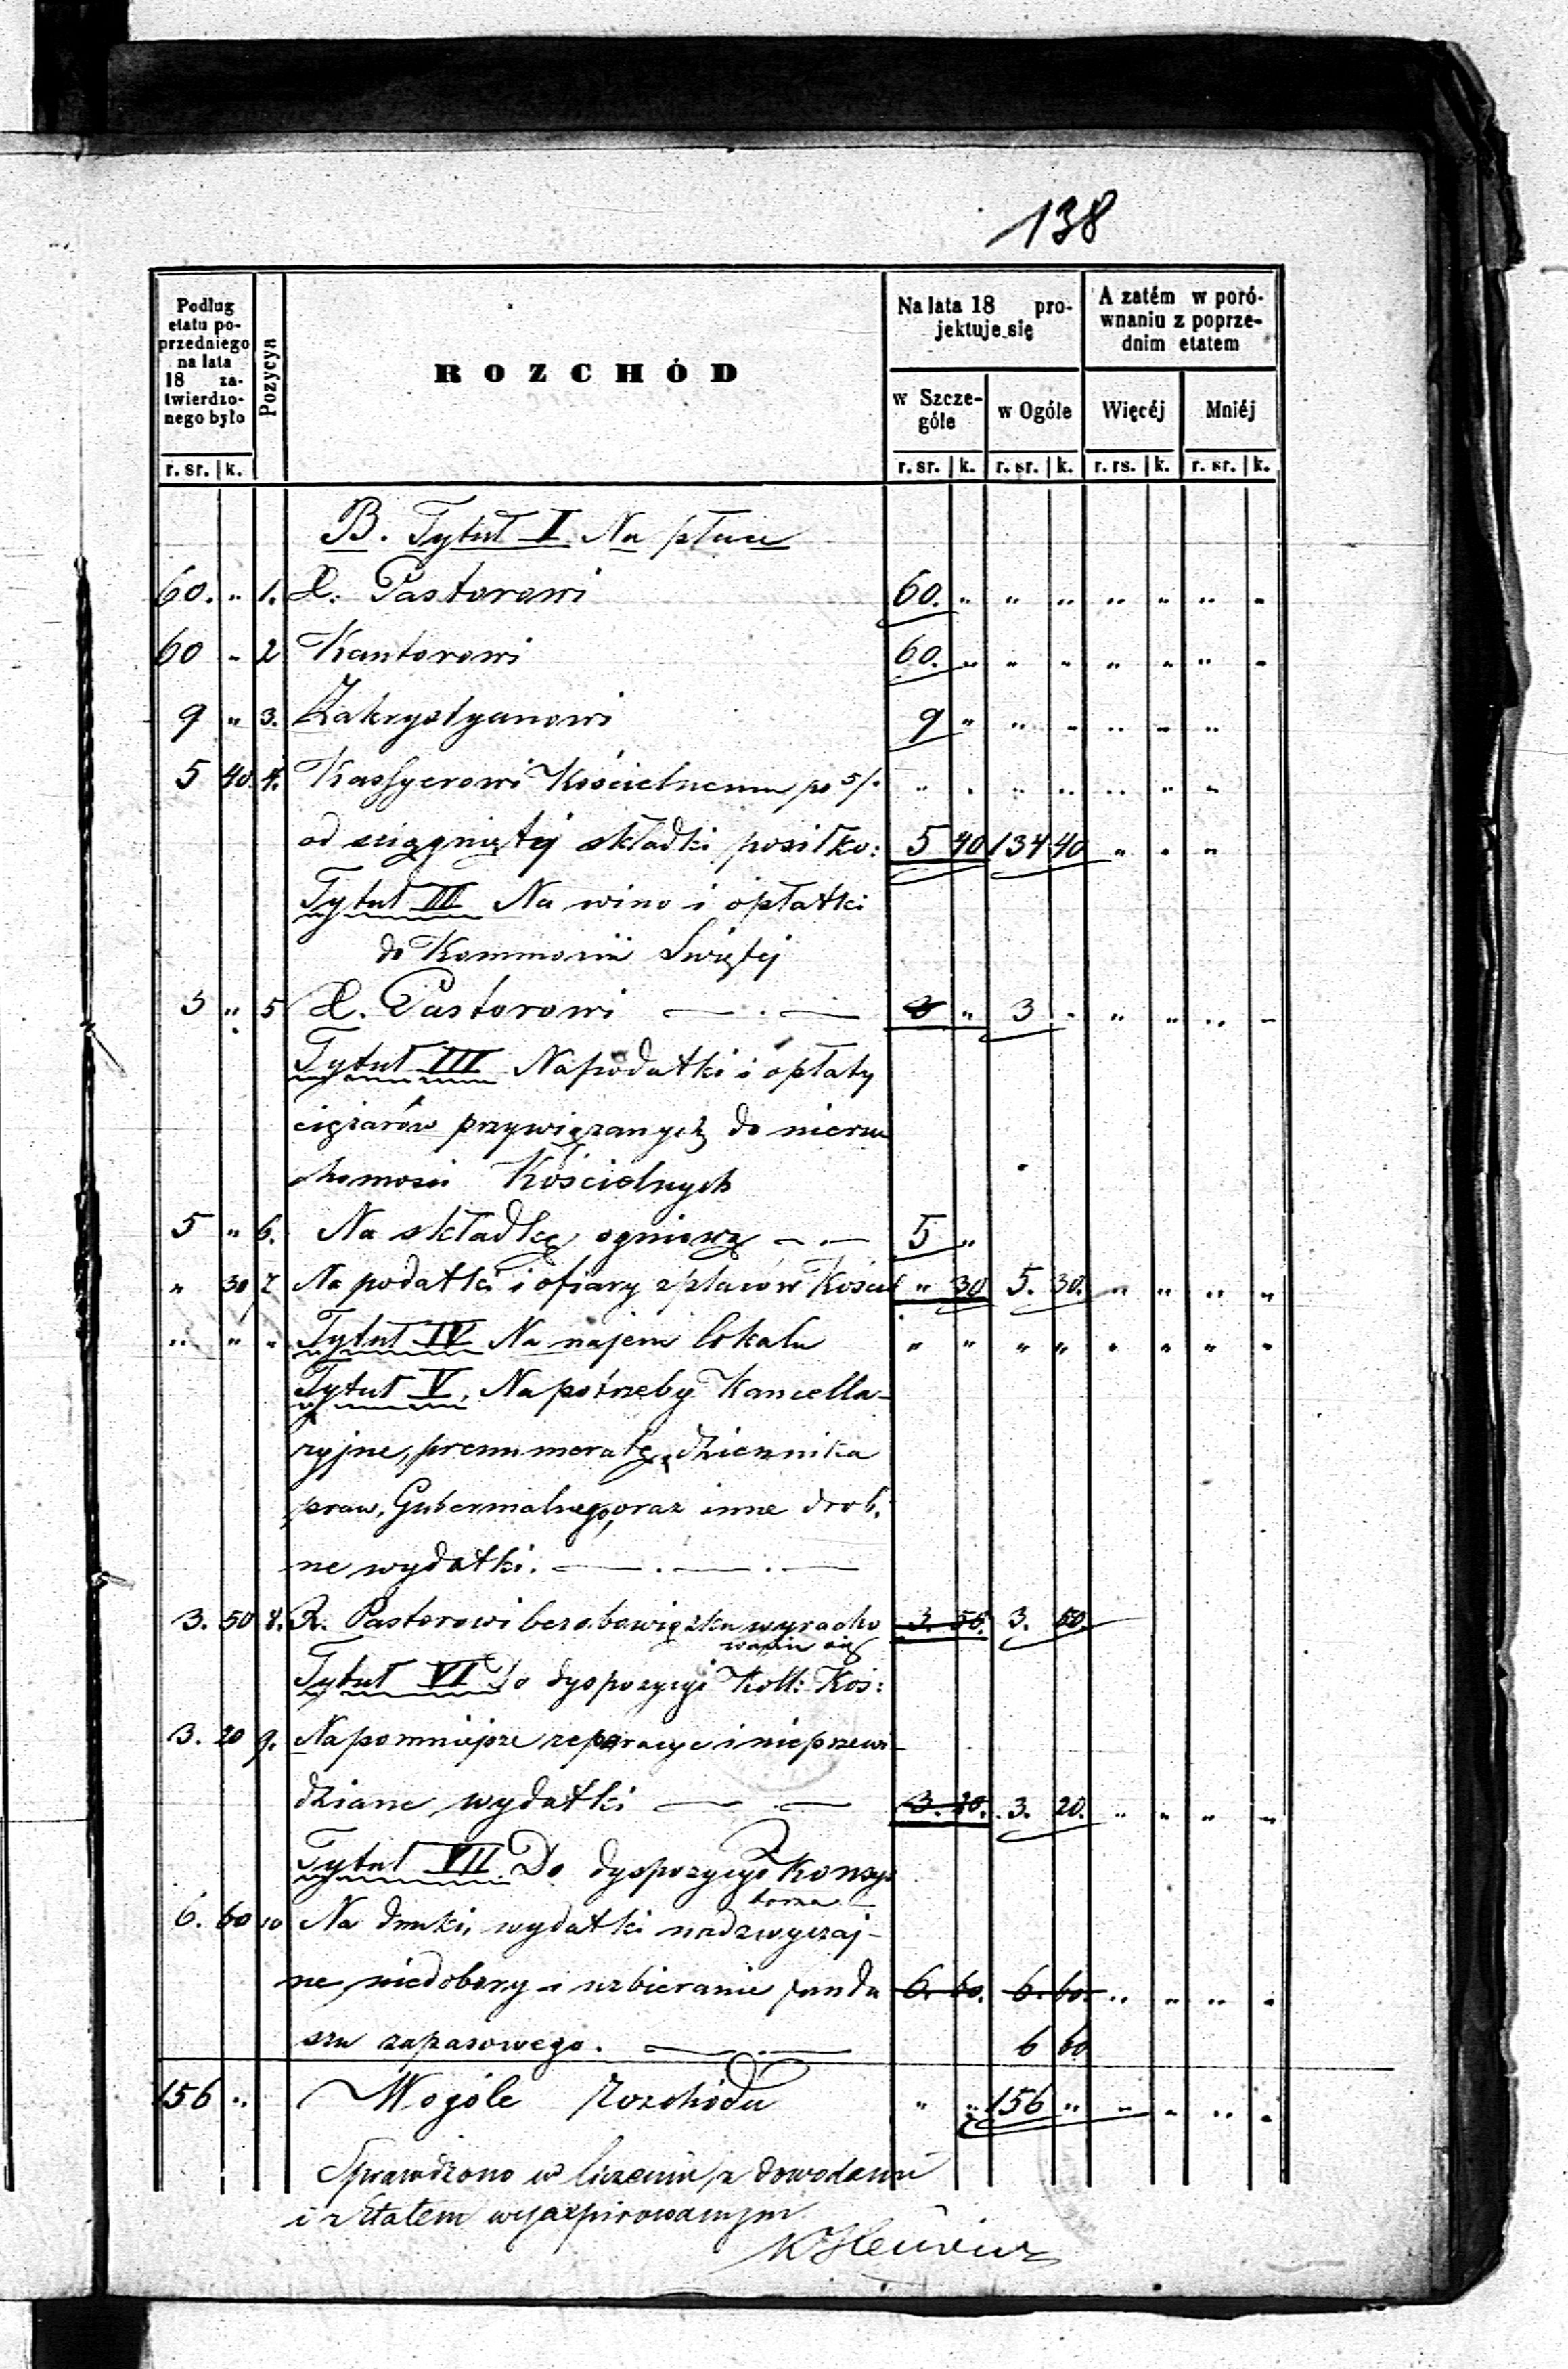 138
Podług etatu po-przedniego na lata 18 za-twierdzo-nego było
Pozycya
ROZCHÓD
Na lata 18 pro-jektuje się
A zatém w poró-wnaniu z poprze-dnim etatem
w Szcze-góle
w Ogóle
Więcéj
Mniéj
r. sr. k. r. sr. k. r. sr. k. r. rs. k. r. sr. k.
B. Tytuł I Na płace
60. " 1. X. Pastorowi 60. " " " " " " "
60 " 2 Kantorowi 60. " " " " " " "
9 " 3. Zakrystyanowi 9 " " " " " "
5 40. 4. Kassyerowi Kościelnemu po 5/. " " " " " " "
od sciągniętéj składki posiłko: 5 40 134 40 " " "
Tytuł II Na wino i opłatki
do Kommunii Swiętéj
3 " 5 X. Pastorowi 3 " 3 " " " " "
Tytuł III Na podatki i opłaty
ciężarów przywiązanych do nieru
chomości Kościelnych
5 " 6. Na składkę ogniową 5 "
" 30 7 Na podatki i ofiary z placów Kościel " 30 5. 30. " " " "
" " " Tytuł IV Na najem lokalu " " " " " " " "
Tytuł V. Na potrzeby Kancella-
ryjne, prenumeratę dziennika
praw, Gubernialnego, oraz inne drob,
ne wydatki.
3. 50 8. X. Pastorowi bez obowiązku wyracho 3. 50. 3. 50.
wania się
Tytuł VI Do dyspozycyi Koll: Koś:
3. 20 9. Na pomniejsze reparacye i nieprzewi-
dziane wydatki 3. 20. 3. 20. " " " "
Tytuł VII Do dyspozycyi Konsys
torza
6. 60 10 Na druki, wydatki nadzwyczaj-
ne, niedobory i uzbieranie fundu 6. 60. 6. 60. " " " "
szu zapasowego. 6 60
156 " Wogóle Rozchodu " " 156 " " " " "
Sprawdzono w liczeniu z dowodami
i z Etatem wyexpirowanym